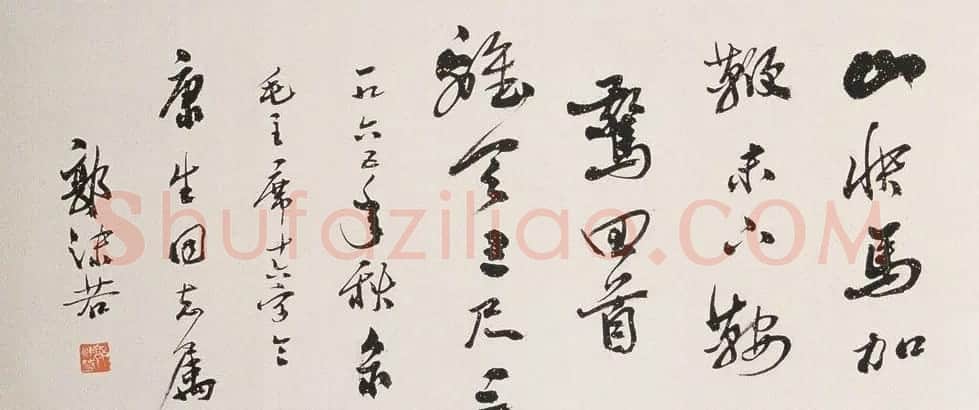 山快馬加
鞭未下鞍
驚回首
離天三尺三
一九六五年秋录
毛主席十六字令
康生同志属
郭沫若
Shufaziliao.COM